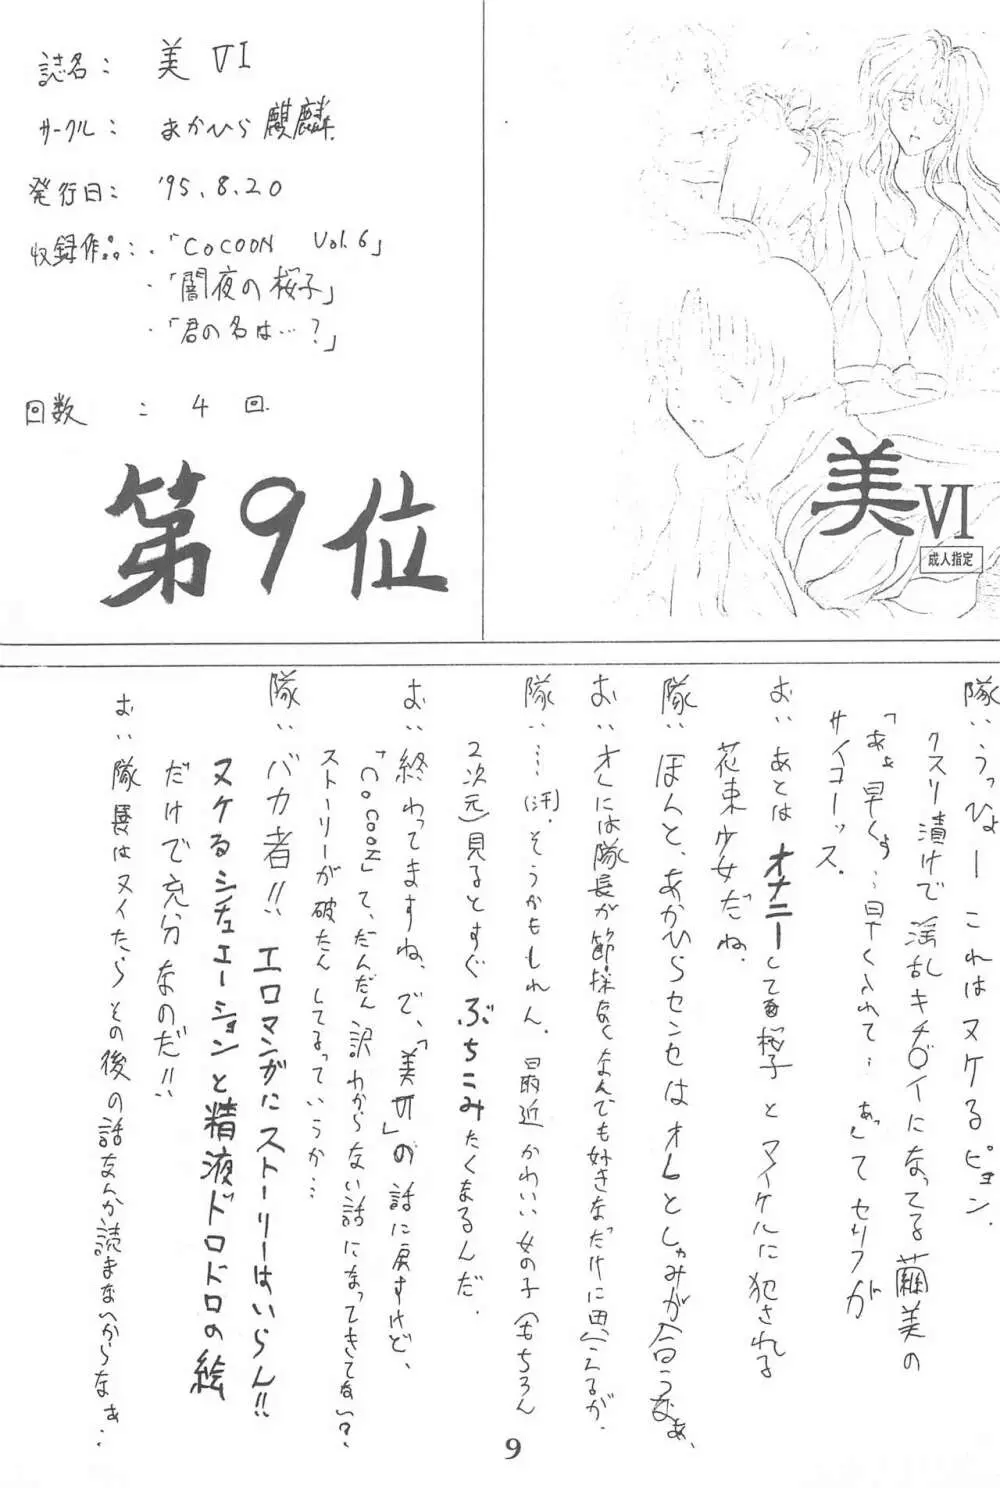 誌名: 美 VI
サークル: あかひら麒麟
発行日: '95.8.20
収録作品: ・「COCOON Vol.6」
・「闇夜の桜子」
・「君の名は…?」
回数 : 4 回
第9位
美VI
成人指定
隊:うっひょー これはヌケるピョン.
クスリ漬けで淫乱キチ〇イになってる繭美の
サイコーッス.
お:あとはオナニーしてる桜子とマイケルに犯される
花束少女だね.
隊:ほんと、あかひらセンセはオレとしゅみが合うなぁ、
お:オレには隊長が節操なくなんでも好きなだけに思えるが.
隊:…(汗).そうかもしれん. 最近かわいい女の子(もちろん
2次元)見るとすぐぶちこみたくなるんだ.
お:終わってますね、で、「美VI」の話に戻すけど、
「COCOON」て、だんだん訳わからない話になってきてない?
ストーリーが破たんしてるっていうか…
隊:バカ者!! エロマンガにストーリーはいらん!!
ヌケるシチュエーションと精液ドロドロの絵
だけで充分なのだ!!
お:隊長はヌイたらその後の話なんか読まないからなぁ..
9